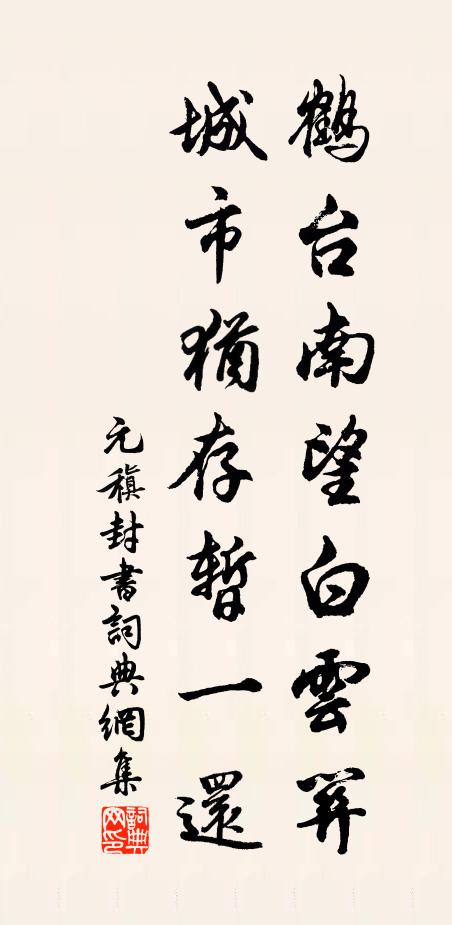 鶴台南望白雲關
城市猶存暫一還
元稹封書詞典網集
詞典網印